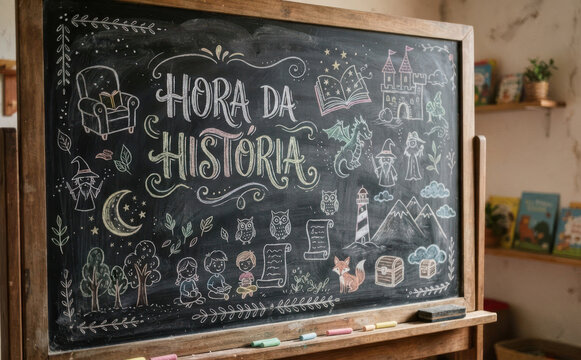 HORA DA
HISTÓRIA